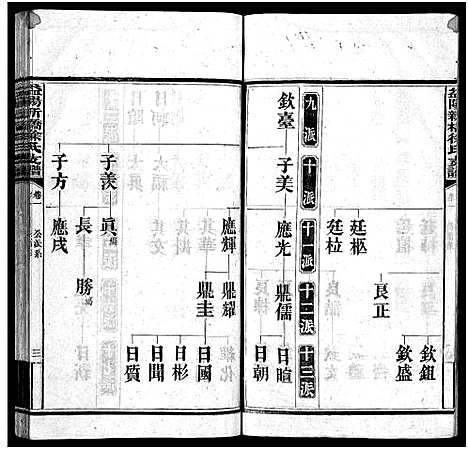 益陽新橋徐氏支譜
廷樞
廷柆
良正
欽鈕
欽盛
九派
十派
十一派
十二派
十三派
欽臺
子美
應光
鼎儒
日暄
日朝
應輝
鼎耀
鼎圭
日國
日彬
日聞
日質
子羨
真
長
勝
子方
應戌
益陽新橋徐氏支譜
卷一
三